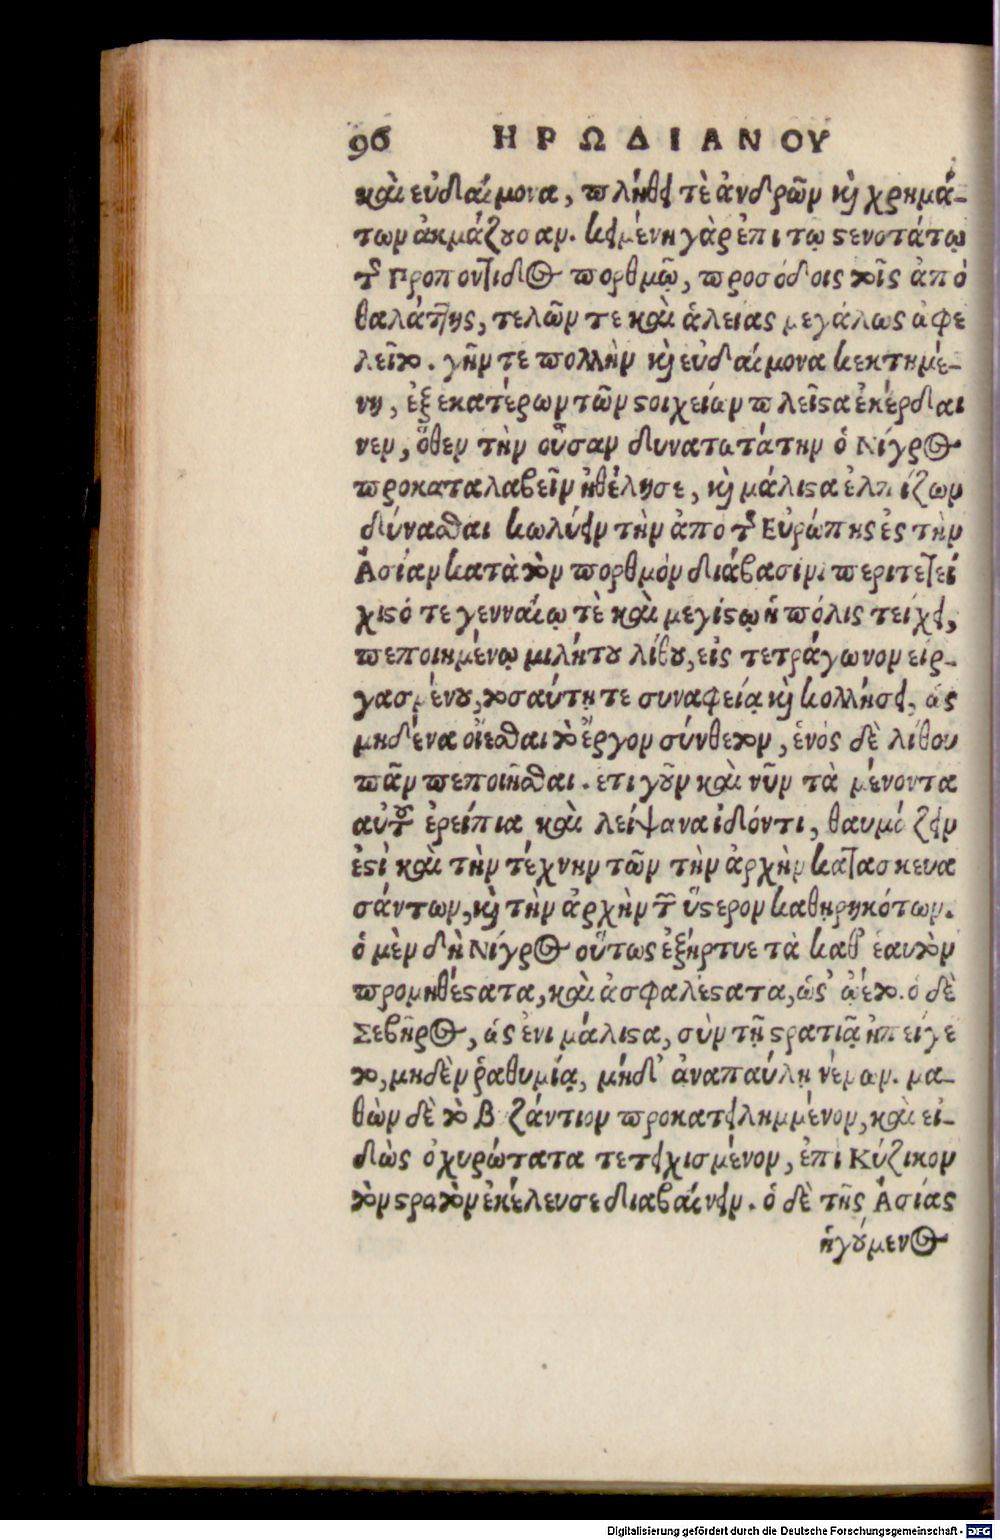 96 ΗΡΩΔΙΑΝΟΥ
καὶ εὐδαίμονα, πλήθει τὲ ἀνδρῶν κὶ χρημά-
των ἀκμάζουσαν. κειμένη γὰρ ἐπι τῳ στενοτάτῳ
τῆς Προποντίδος πορθμῷ, προσόδοις τοῖς ἀπό
θαλάττης, τελῶν τε καὶ ἁλείας μεγάλως ὀφε
λεῖτο. γῆν τε πολλὴν κὶ εὐδαίμονα κεκτημέ-
νη, ἐξ εκατέρων τῶν στοιχείων πλεῖστα ἐκέρδαι
νεν, ὅθεν τὴν οὖσαν δυνατωτάτην ὁ Νίγρος
προκαταλαβεῖν ἠθέλησε, κὶ μάλιστα ἐλπίζων
δύνασθαι κωλύειν τὴν ἀπο τῆς Εὐρώπης ἐς τὴν
Ἀσίαν κατὰ τὸν πορθμόν διάβασιν. περιτετεί
χιστό τε γενναίῳ τὲ καὶ μεγίστῳ ἡ πόλις τείχει,
πεποιημένῳ μιλήτου λίθου, εἰς τετράγωνον εἰρ-
γασμένου, τοσαύτῃ τε συναφείᾳ κὶ κολλήσει, ὡς
μηδένα οἴεσθαι τὸ ἔργον σύνθετον, ἑνός δὲ λίθου
πᾶν πεποιῆσθαι. ετι γοῦν καὶ νῦν τὰ μένοντα
αὐτοῦ ἐρείπια καὶ λείψανα ἰδόντι, θαυμάζειν
ἐστὶ καὶ τὴν τέχνην τῶν τὴν ἀρχὴν κατασκευα
σάντων, κὶ τὴν ἀρχὴν τῶν ὕστερον καθῃρηκότων.
ὁ μὲν δὴ Νίγρος οὕτως ἐξήρτυε τὰ καθ' ἑαυτὸν
προμηθέστατα, καὶ ἀσφαλέστατα, ὡς ᾤετο. ὁ δὲ
Σεβῆρος, ὡς ἐνι μάλιστα, σὺν τῇ στρατιᾷ ἠπείγε
το, μηδὲν ῥαθυμίᾳ, μήδ' ἀναπαύλῃ νέμων. μα-
θὼν δὲ τὸ Βζάντιον προκατειλημμένον, καὶ εἰ-
δὼς ὀχυρώτατα τετειχισμένον, ἐπι Κύζικον
τὸν στρατὸν ἐκέλευσε διαβαίνειν. ὁ δὲ τῆς Ἀσίας
ἡγούμενος
Digitalisierung gefördert durch die Deutsche Forschungsgemeinschaft - DFG